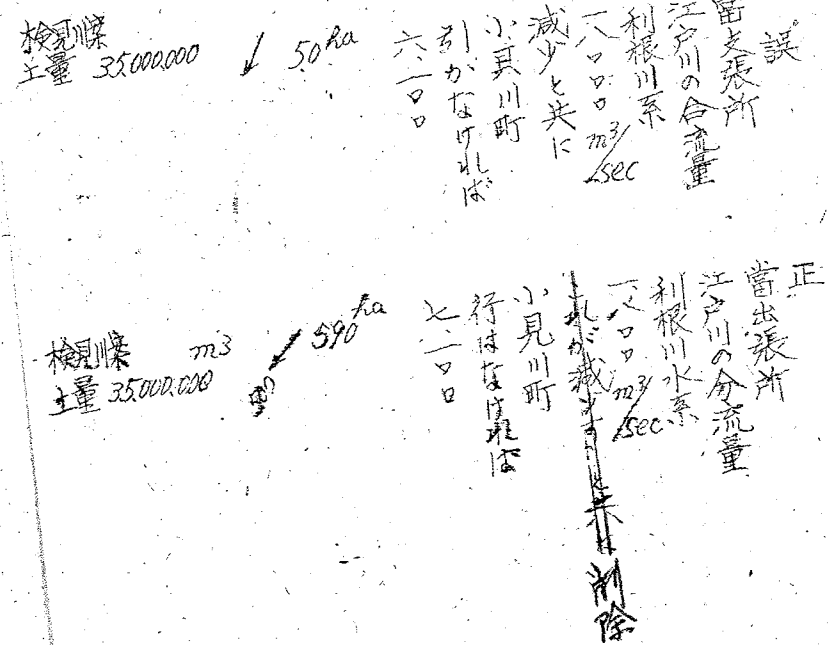 誤
当支張所
江戸川の合流量
利根川系
八〇〇〇 m³/sec
減少と共に
小貝川町
引がなければ
六、一〇〇
50ha
検見川案
土量 35,000,000
正
當出張所
江戸川の分流量
利根川水系
m³/sec
削除
小見川町
行はなければ
七、一〇〇
590ha
検見川案 m³
土量 35,000,000